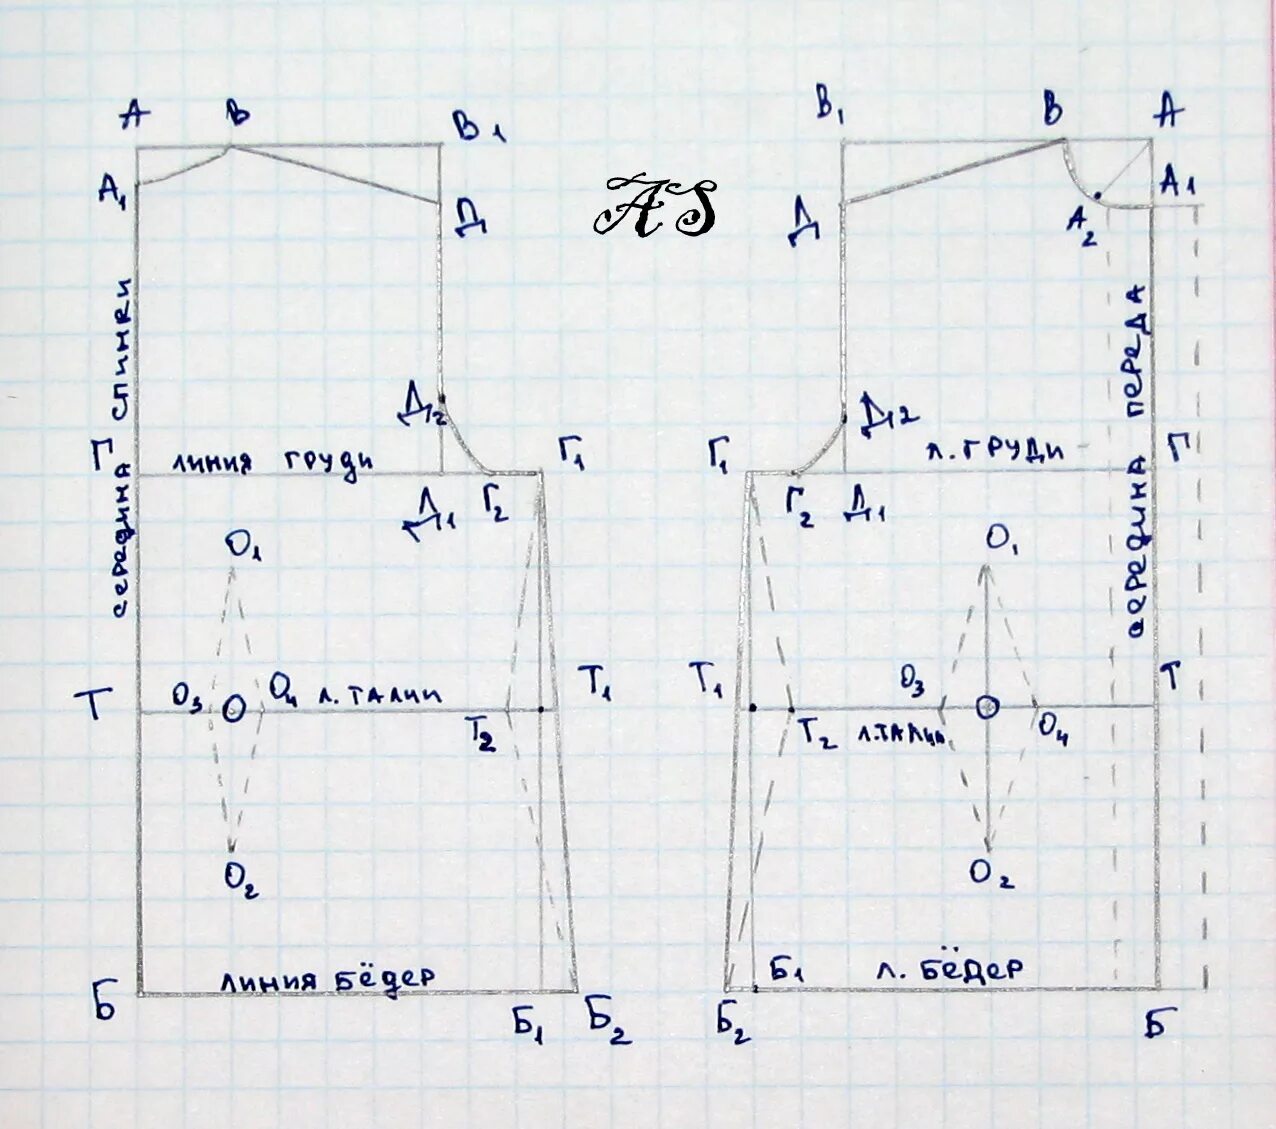 А В В1
А1 Д
середина спинки
Д2
Г линия груди Г1
Д1 Г2
О1
Т О3 О О4 л. талии Т1
Т2
О2
линия бёдер
Б Б1 Б2
AS
В1 В А
Д А2 А1
середина переда
Д2
Г1 л. груди Г
Г2 Д1
О1
Т1 О3 О Т
Т2 л. талии О4
О2
Б1 л. бёдер
Б2 Б